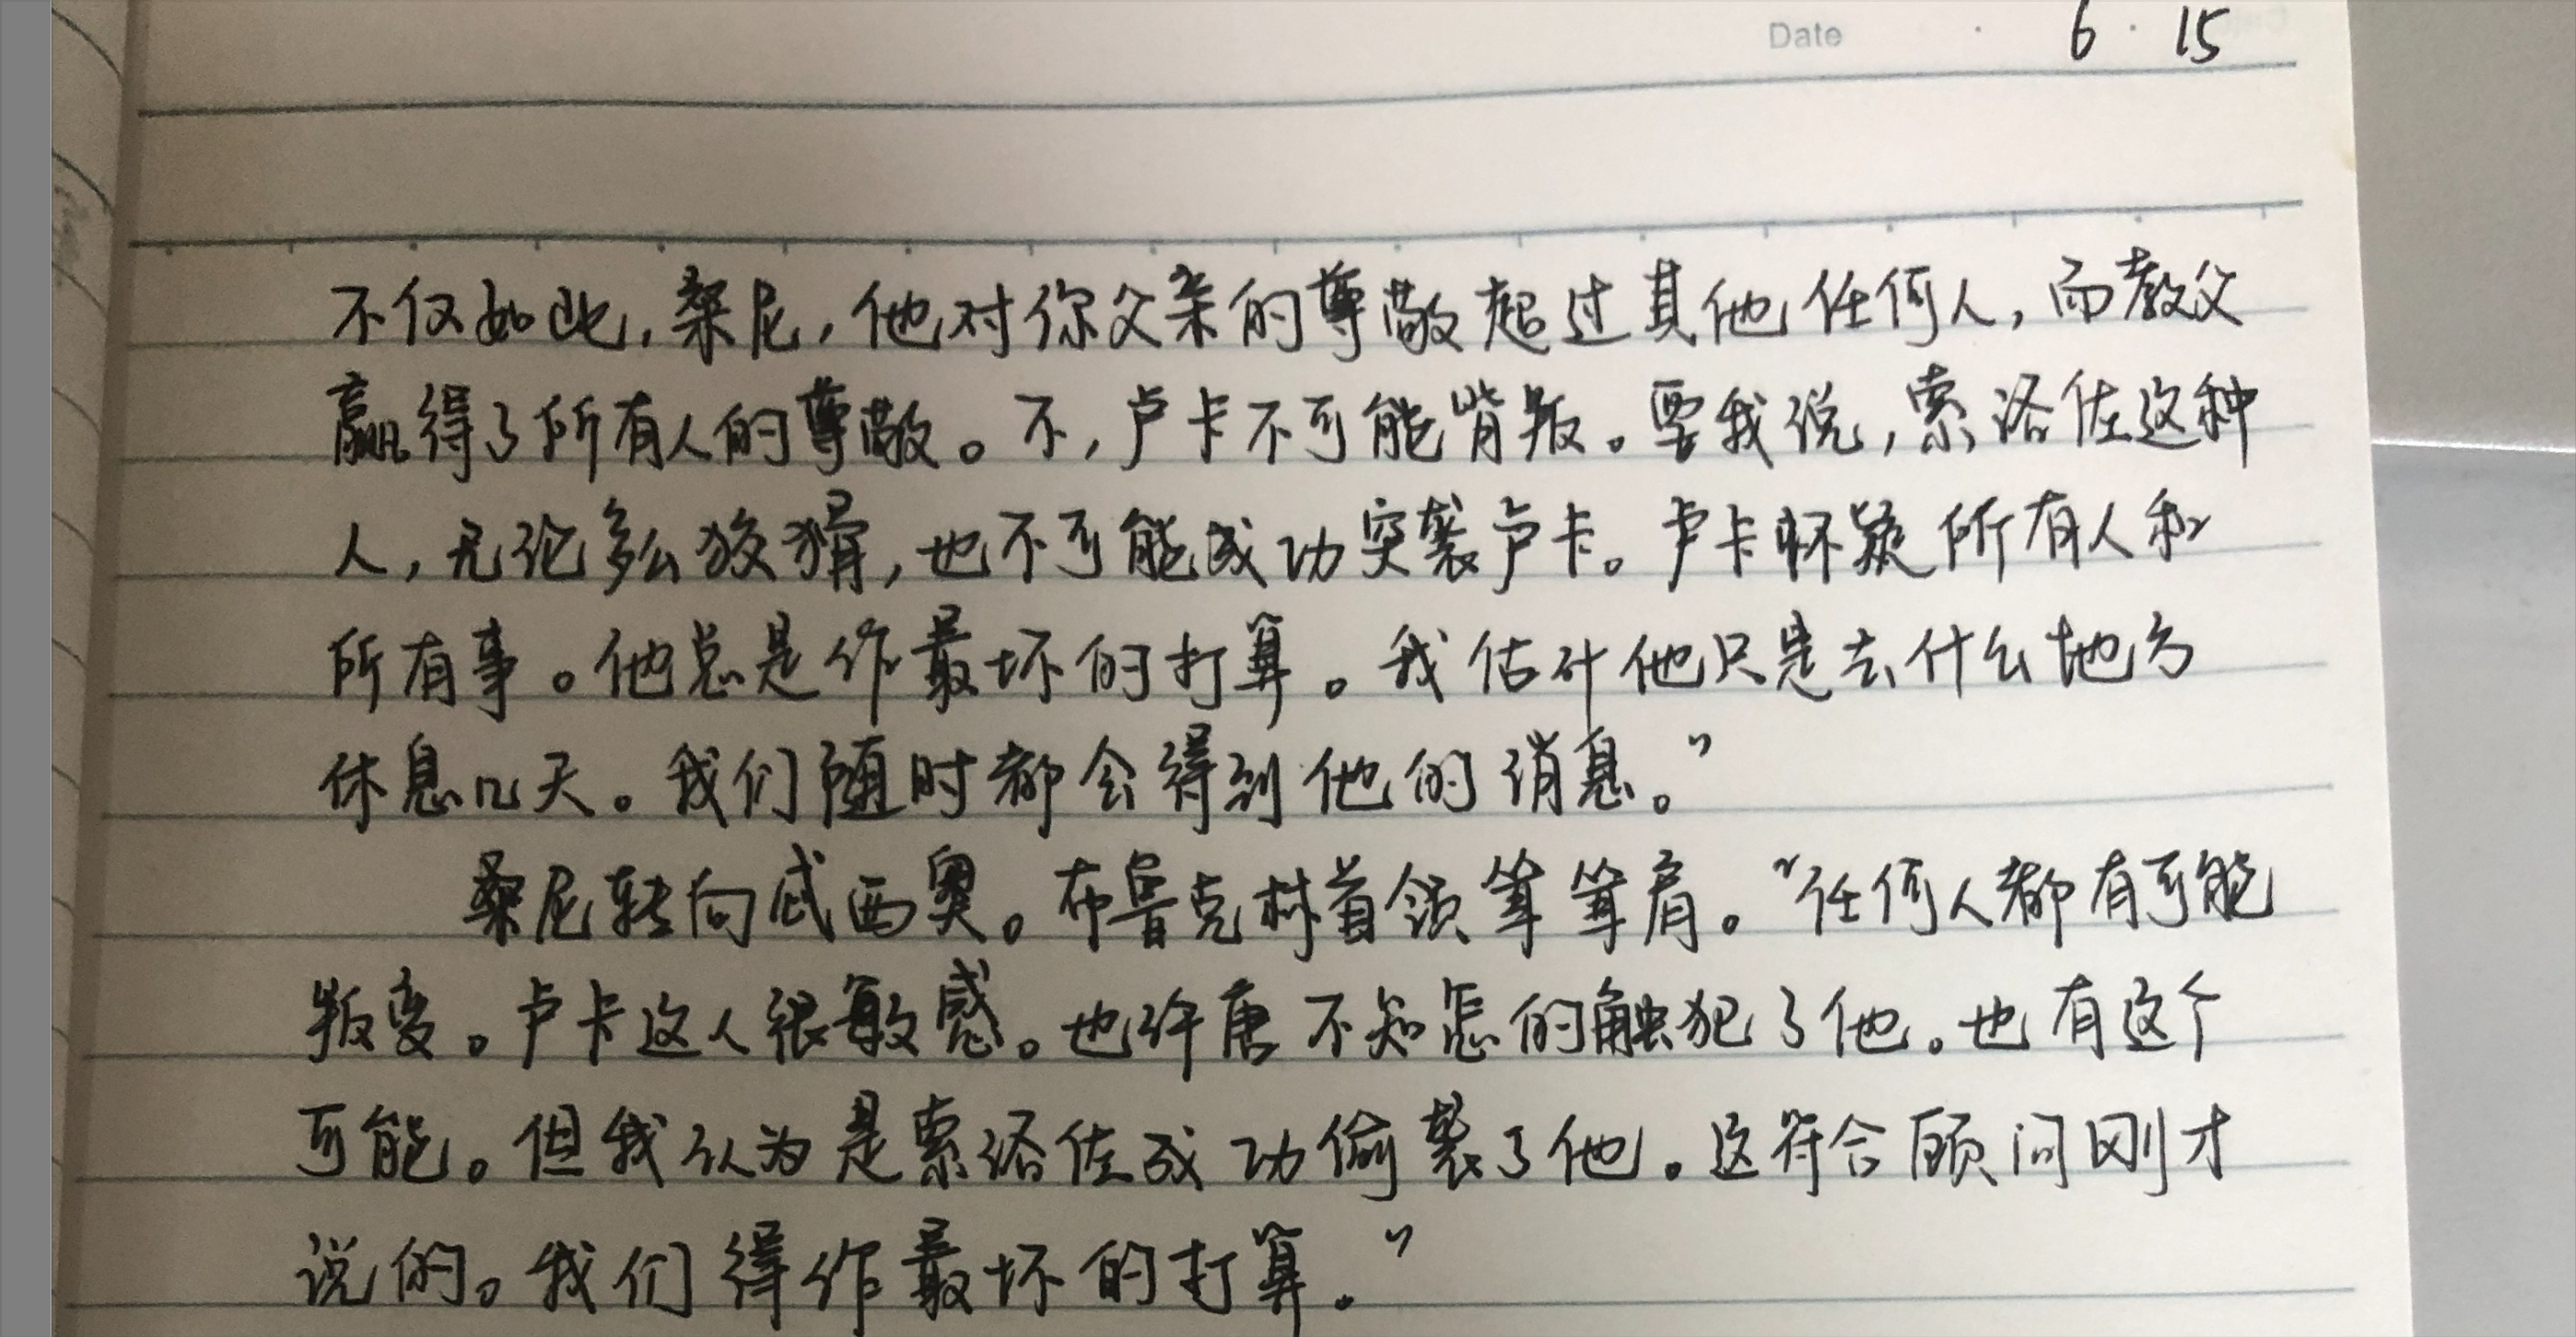 Date 6 · 15
不仅如此,桑尼,他对你父亲的尊敬超过其他任何人,而教父
赢得了所有人的尊敬。不,卢卡不可能背叛。要我说,索洛佐这种
人,无论多么狡猾,也不可能成功突袭卢卡。卢卡怀疑所有人和
所有事。他总是作最坏的打算。我估计他只是去什么地方
休息几天。我们随时都会得到他的消息。”
桑尼转向忒西奥。布鲁克林首领耸耸肩。“任何人都有可能
叛变。卢卡这人很敏感。也许唐不知怎的触犯了他。也有这个
可能。但我认为是索洛佐成功偷袭了他。这符合顾问刚才
说的。我们得作最坏的打算。”